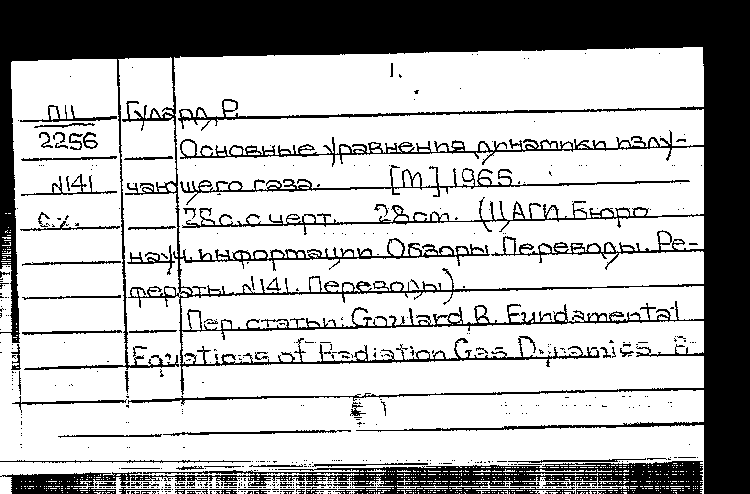 1.
ПII Гулард, Р.
2256 Основные уравнения динамики излу-
№141 чающего газа. [М], 1965.
с.х. 28с. с черт. 28cm. (ЦАГИ. Бюро
науч. информации. Обзоры. Переводы. Ре-
фераты. №141. Переводы).
Пер. статьи: Goulard, R. Fundamental
Equations of Radiation Gas Dynamics.